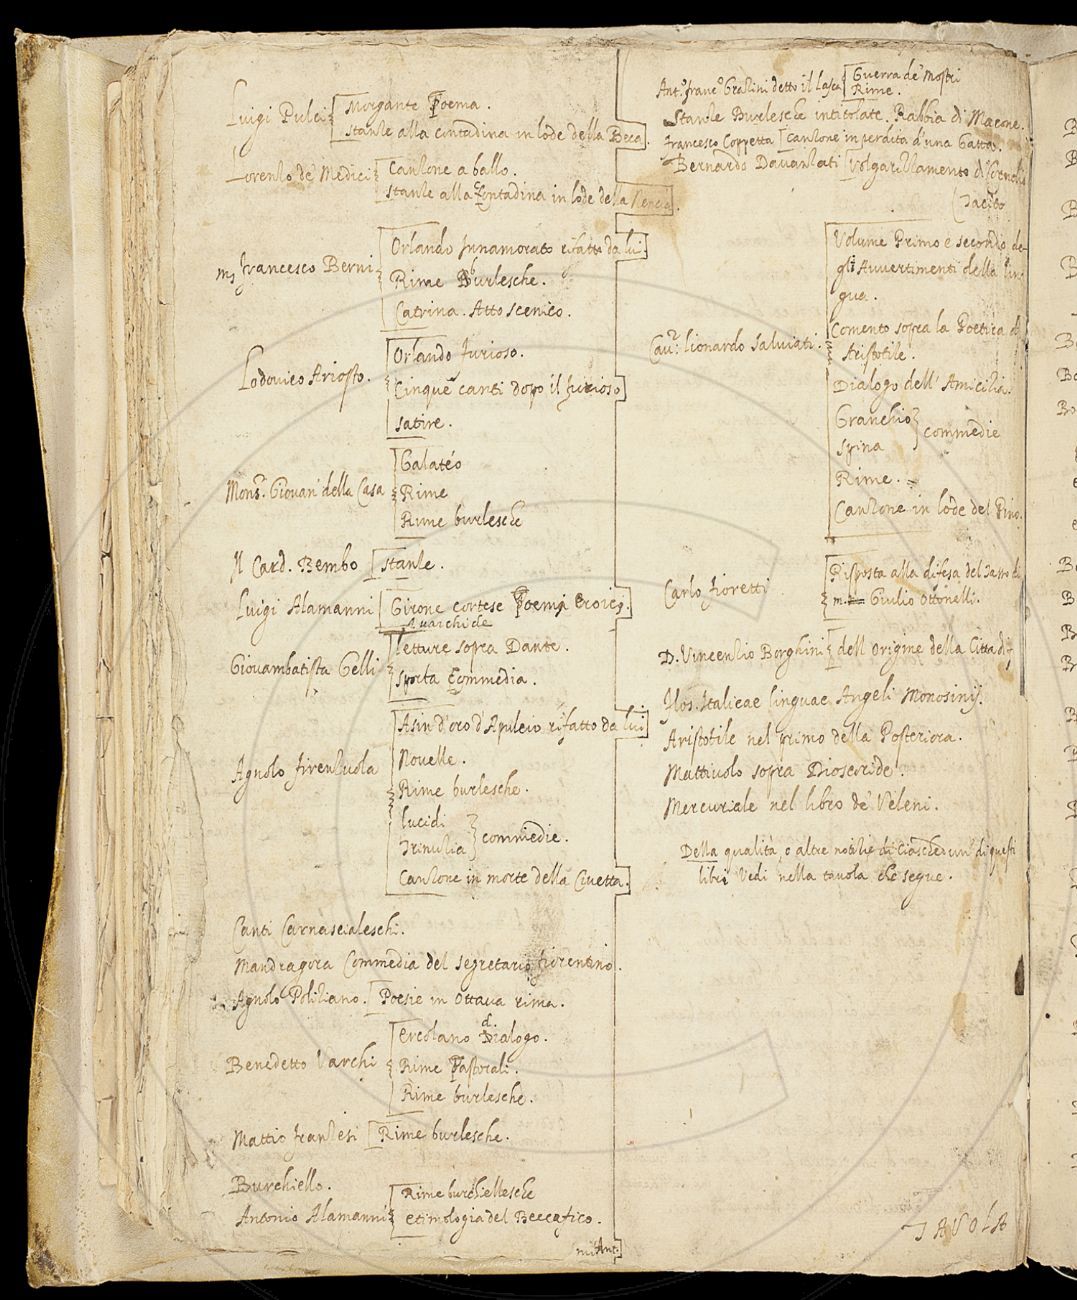 Luigi Pulci
Morgante Poema.
Stanze alla contadina in lode della Beca.
Lorenzo de' Medici
Canzone a ballo.
Stanze alla Contadina in lode della Nencia.
Francesco Berni
Orlando Innamorato rifatto da lui.
Rime Burlesche.
Catrina. Atto scenico.
Lodovico Ariosto.
Orlando Furioso.
Cinque canti dopo il furioso
Satire.
Mons.r Giovan' della Casa
Galatéo
Rime
Rime burlesche
Il Card. Bembo
Stanze.
Luigi Alamanni
Girone cortese Poemi eroici.
Avarchide
Giovambatista Gelli
letture sopra Dante.
Sporta Commedia.
Agnolo Firenzuola
Asin d'oro d'Apuleio rifatto da lui
Novelle.
Rime burlesche.
lucidi
Trinuzia
commedie.
Canzone in morte della Civetta.
Canti Carnascialeschi.
Mandragora Commedia del segretario fiorentino.
Agnolo Poliziano.
Poesie in Ottava rima.
Benedetto Varchi
Ercolano Dialogo.
Rime Pastorali.
Rime burlesche.
Mattio franzesi
Rime burlesche.
Burchiello.
Antonio Alamanni
Rime burchiellesche
etimologia del Beccafico.
Ant.
Ant.o franc.o Grazini detto il lasca
Guerra de' Mostri
Rime.
Stanze Burlesche intitolate. Rabbia di Macone.
Francesco Coppetta
Canzone in perdita d'una Gatta.
Bernardo Davanzati
Volgarizzamento di Cornelio
Tacito
Cav.r Lionardo Salviati.
Volume Primo e secondo de-
gli Avvertimenti della lin
gua.
Comento sopra la Poetica d'
Aristotile.
Dialogo dell' Amicizia.
Granchio
Spina
commedie
Rime.
Canzone in lode del Pino.
Carlo Fioretti
Risposta alla difesa del Tasso di
m. Giulio Ottonelli.
D. Vincenzio Borghini
dell Origine della Città di f.
Flos. Italicae linguae Angeli Monosinij.
Aristotile nel primo della Posteriora.
Mattiuolo sopra Dioscoride.
Mercuriale nel libro de' Veleni.
Della qualità, o altre notizie di ciascheduno di questi
libri Vedi nella tavola che segue.
TAVOLA